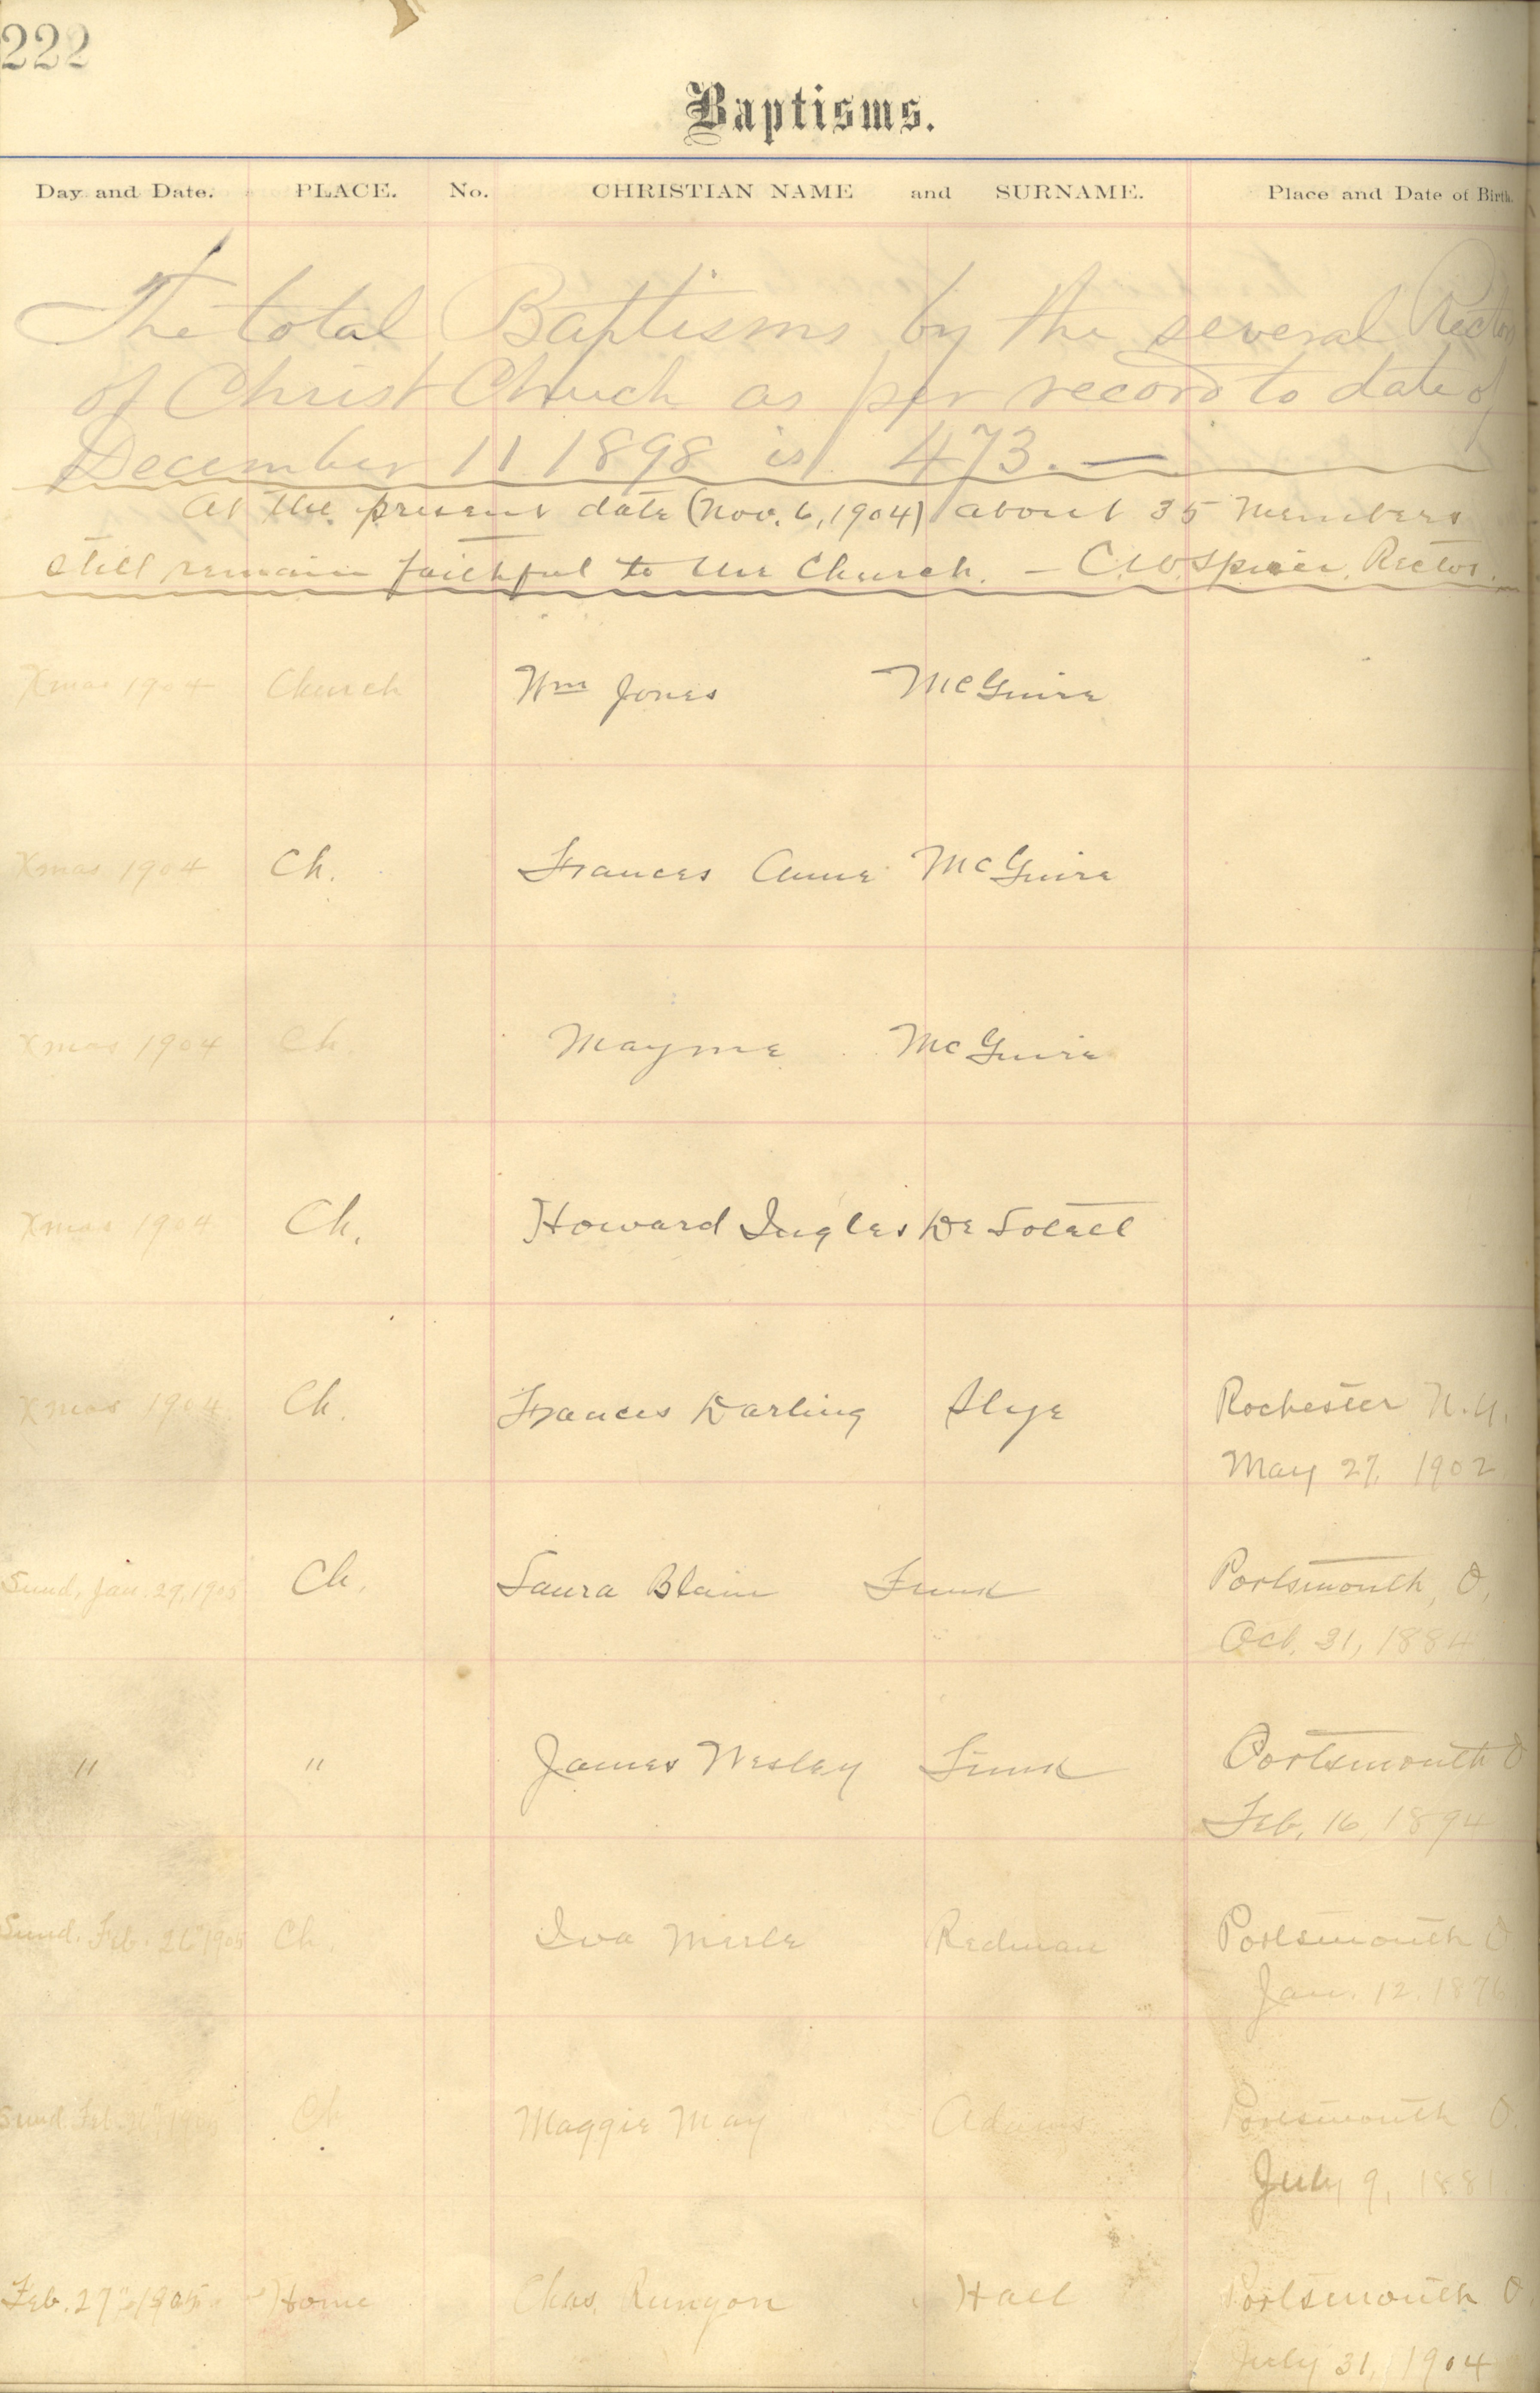 222
Baptisms.
Day and Date. PLACE. No. CHRISTIAN NAME and SURNAME. Place and Date of Birth.
The total Baptisms by the several Rectors
of Christ Church as per record to date of
December 11 1898 is 473.—
At the present date (Nov. 6, 1904) about 35 members
still remain faithful to the Church. — C.W. Spicer, Rector.
Xmas 1904 Church Wm Jones McGuire
Xmas 1904 Ch. Frances Anne McGuire
Xmas 1904 Ch. Mayme McGuire
Xmas 1904 Ch. Howard Ingles De
Xmas 1904 Ch. Frances Darling Slye Rochester N.Y.
May 27, 1902
Sund. Jan. 29, 1905 Ch. Laura Blain Funk Portsmouth, O.
Oct. 31, 1884
" " James Wesley Funk Portsmouth O
Feb. 16, 1894
Sund. Feb. 26" 1905 Ch. Iva Merle Redman Portsmouth O
Jan. 12, 1876
Sund. Feb. 1905 Ch Maggie May Adams Portsmouth O.
July 9, 1881
Feb. 27" 1905 Home Chas. Runyon Hall Portsmouth O
July 31, 1904